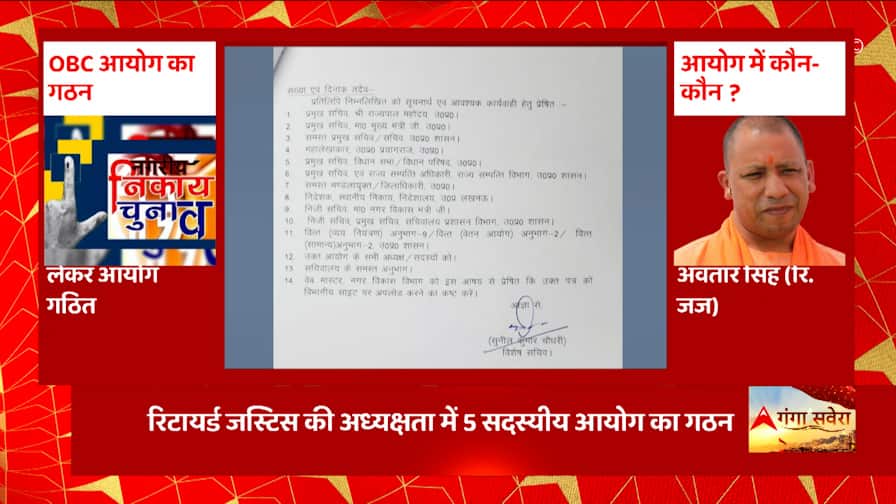 OBC आयोग का
गठन
नगरीय
निकाय
चुनाव
लेकर आयोग
गठित
संख्या एवं दिनांक तदैव-
प्रतिलिपि निम्नलिखित को सूचनार्थ एवं आवश्यक कार्यवाही हेतु प्रेषित :-
1. प्रमुख सचिव, श्री राज्यपाल महोदय, उ०प्र०।
2. प्रमुख सचिव, मा० मुख्य मंत्री जी, उ०प्र०।
3. समस्त प्रमुख सचिव/सचिव, उ०प्र० शासन।
4. महालेखाकार, उ०प्र० प्रयागराज, उ०प्र०।
5. प्रमुख सचिव, विधान सभा/विधान परिषद, उ०प्र०।
6. प्रमुख सचिव, एवं राज्य सम्पत्ति अधिकारी, राज्य सम्पत्ति विभाग, उ०प्र० शासन।
7. समस्त मण्डलायुक्त/जिलाधिकारी, उ०प्र०।
8. निदेशक, स्थानीय निकाय, निदेशालय, उ०प्र लखनऊ।
9. निजी सचिव, मा० नगर विकास मंत्री जी।
10. निजी सचिव, प्रमुख सचिव, सचिवालय प्रशासन विभाग, उ०प्र० शासन।
11. वित्त (व्यय नियंत्रण) अनुभाग-9/वित्त (वेतन आयोग) अनुभाग-2/ वित्त
(सामान्य)अनुभाग-2, उ०प्र० शासन।
12. उक्त आयोग के सभी अध्यक्ष/सदस्यों को।
13. सचिवालय के समस्त अनुभाग।
14. वेब मास्टर, नगर विकास विभाग को इस आशय से प्रेषित कि उक्त पत्र को
विभागीय साइट पर अपलोड करने का कष्ट करें।
आज्ञा से,
(सुनील कुमार चौधरी)
विशेष सचिव।
आयोग में कौन-
कौन ?
अवतार सिंह (रि.
जज)
रिटायर्ड जस्टिस की अध्यक्षता में 5 सदस्यीय आयोग का गठन
गंगा सवेरा